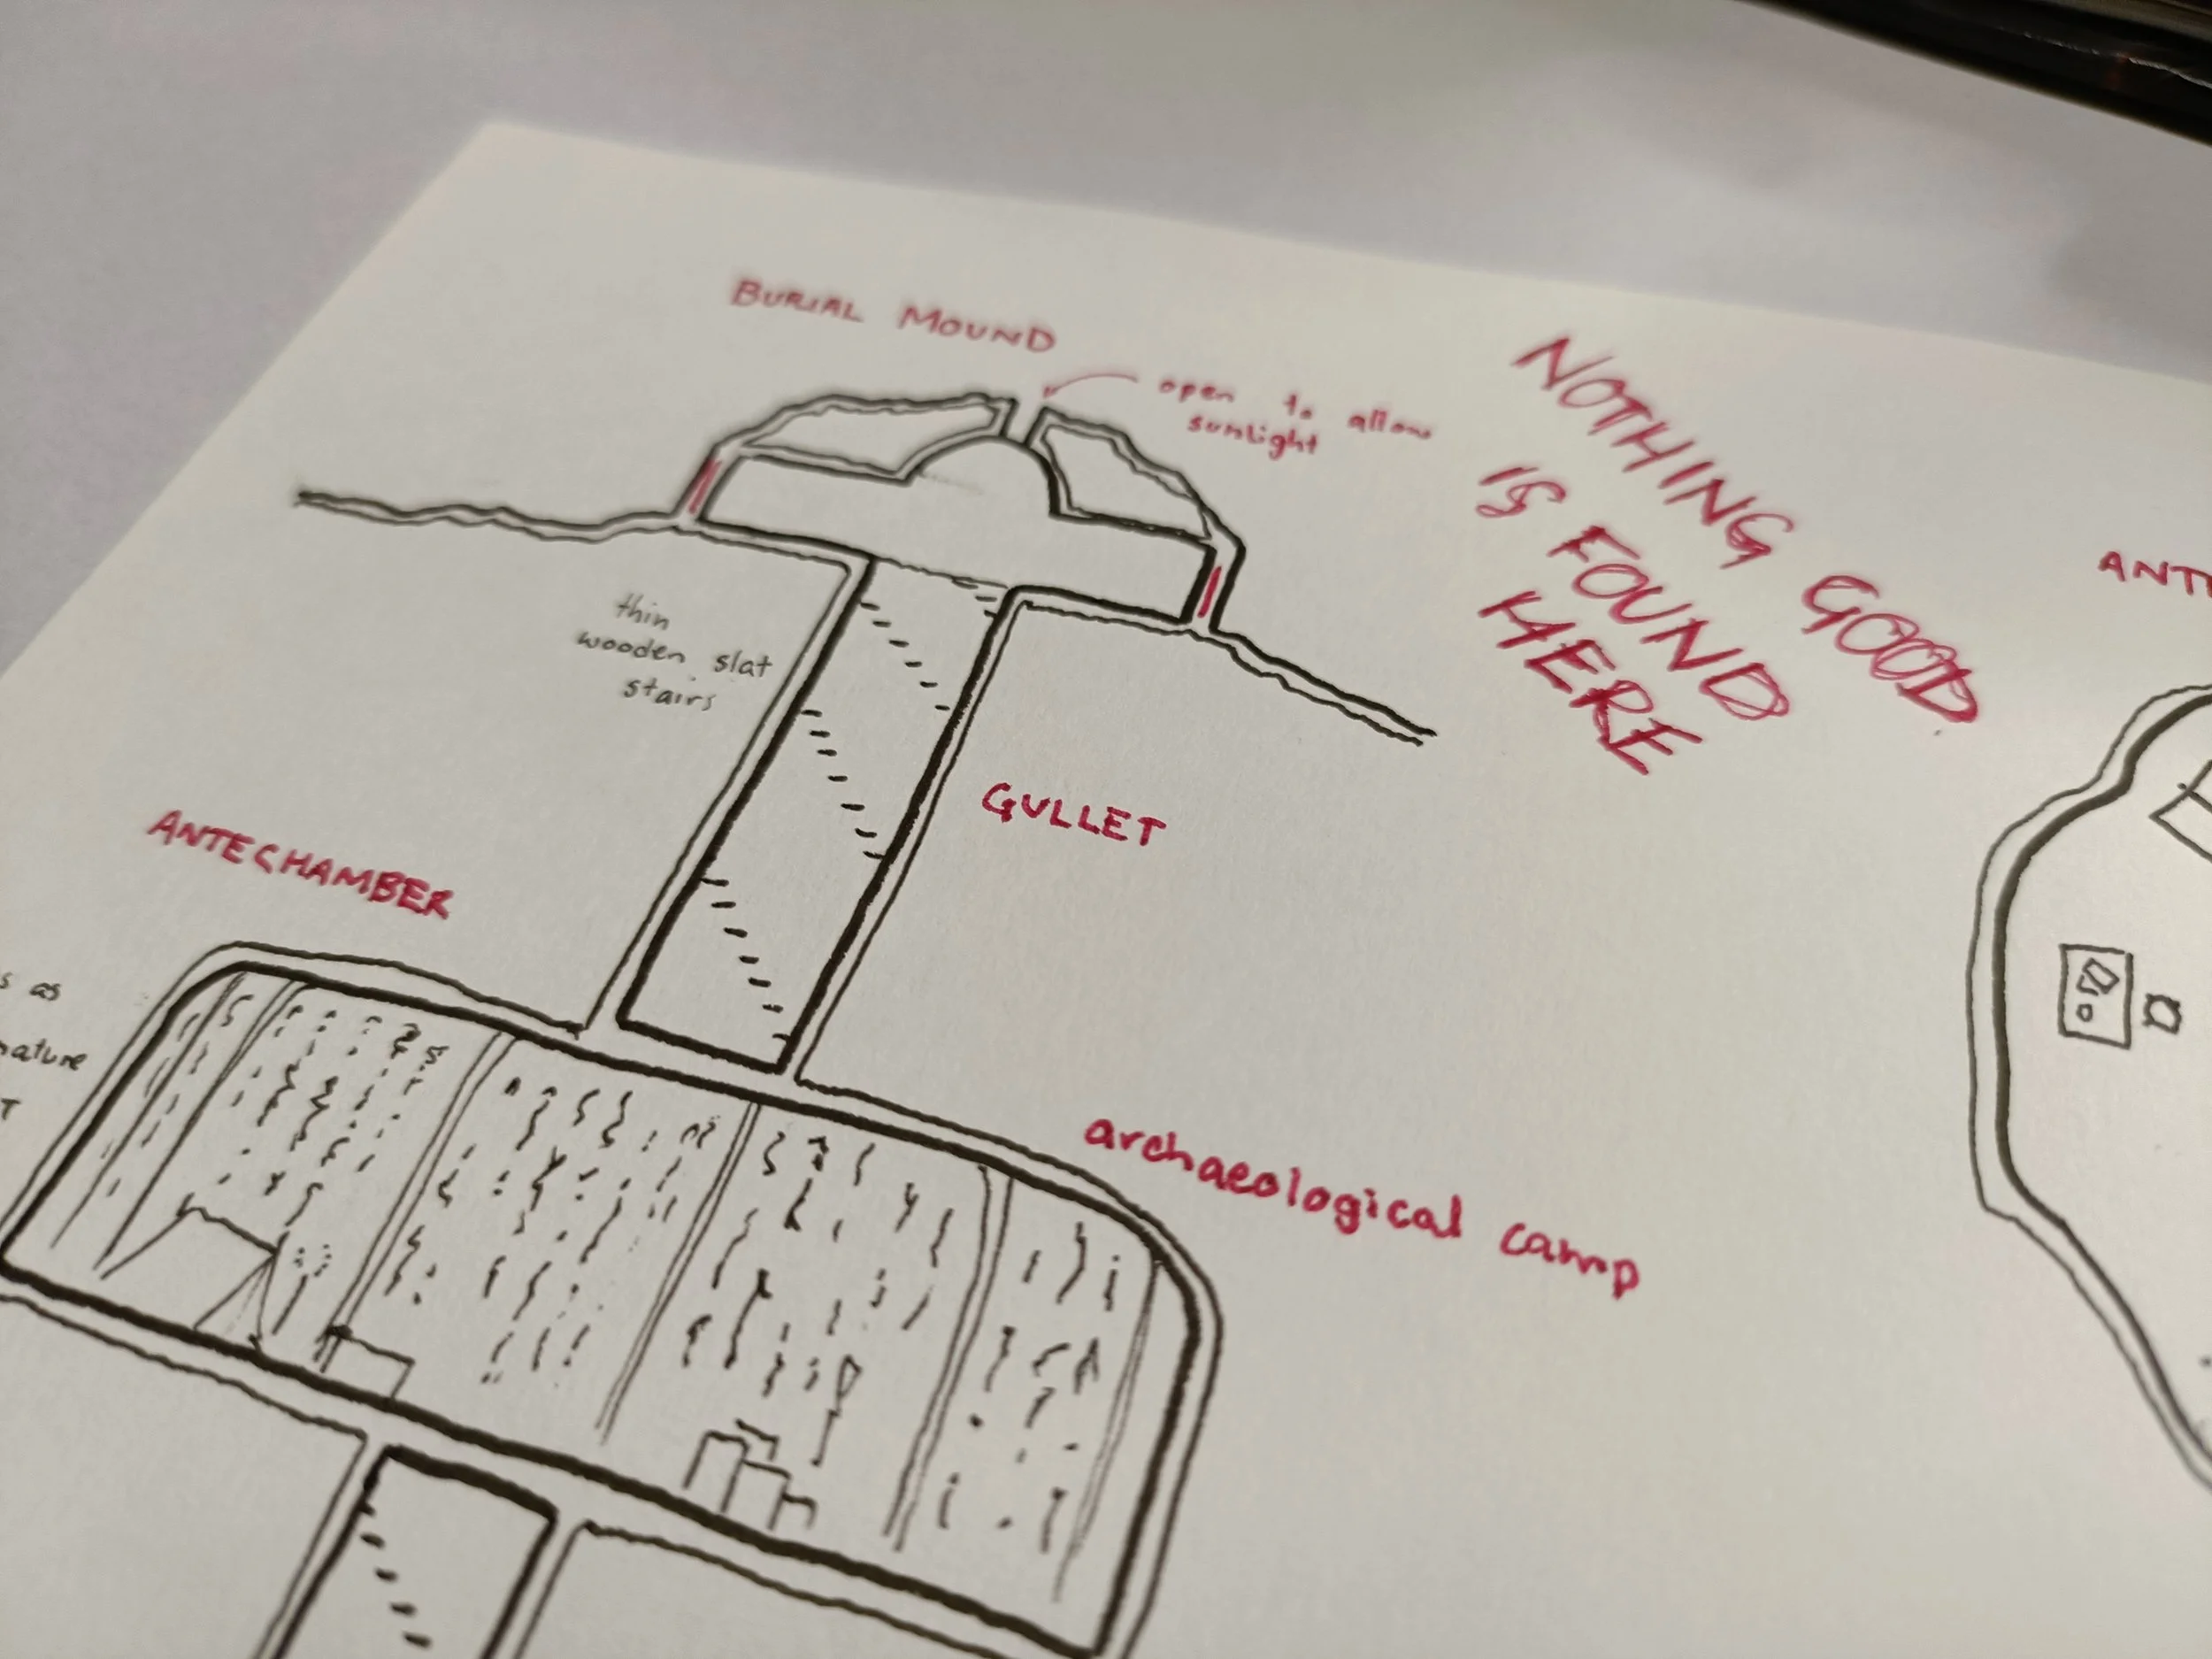 BURIAL MOUND
open to allow
sunlight
NOTHING GOOD
IS FOUND
HERE
thin
wooden slat
stairs
GULLET
ANTECHAMBER
as
archaeological camp